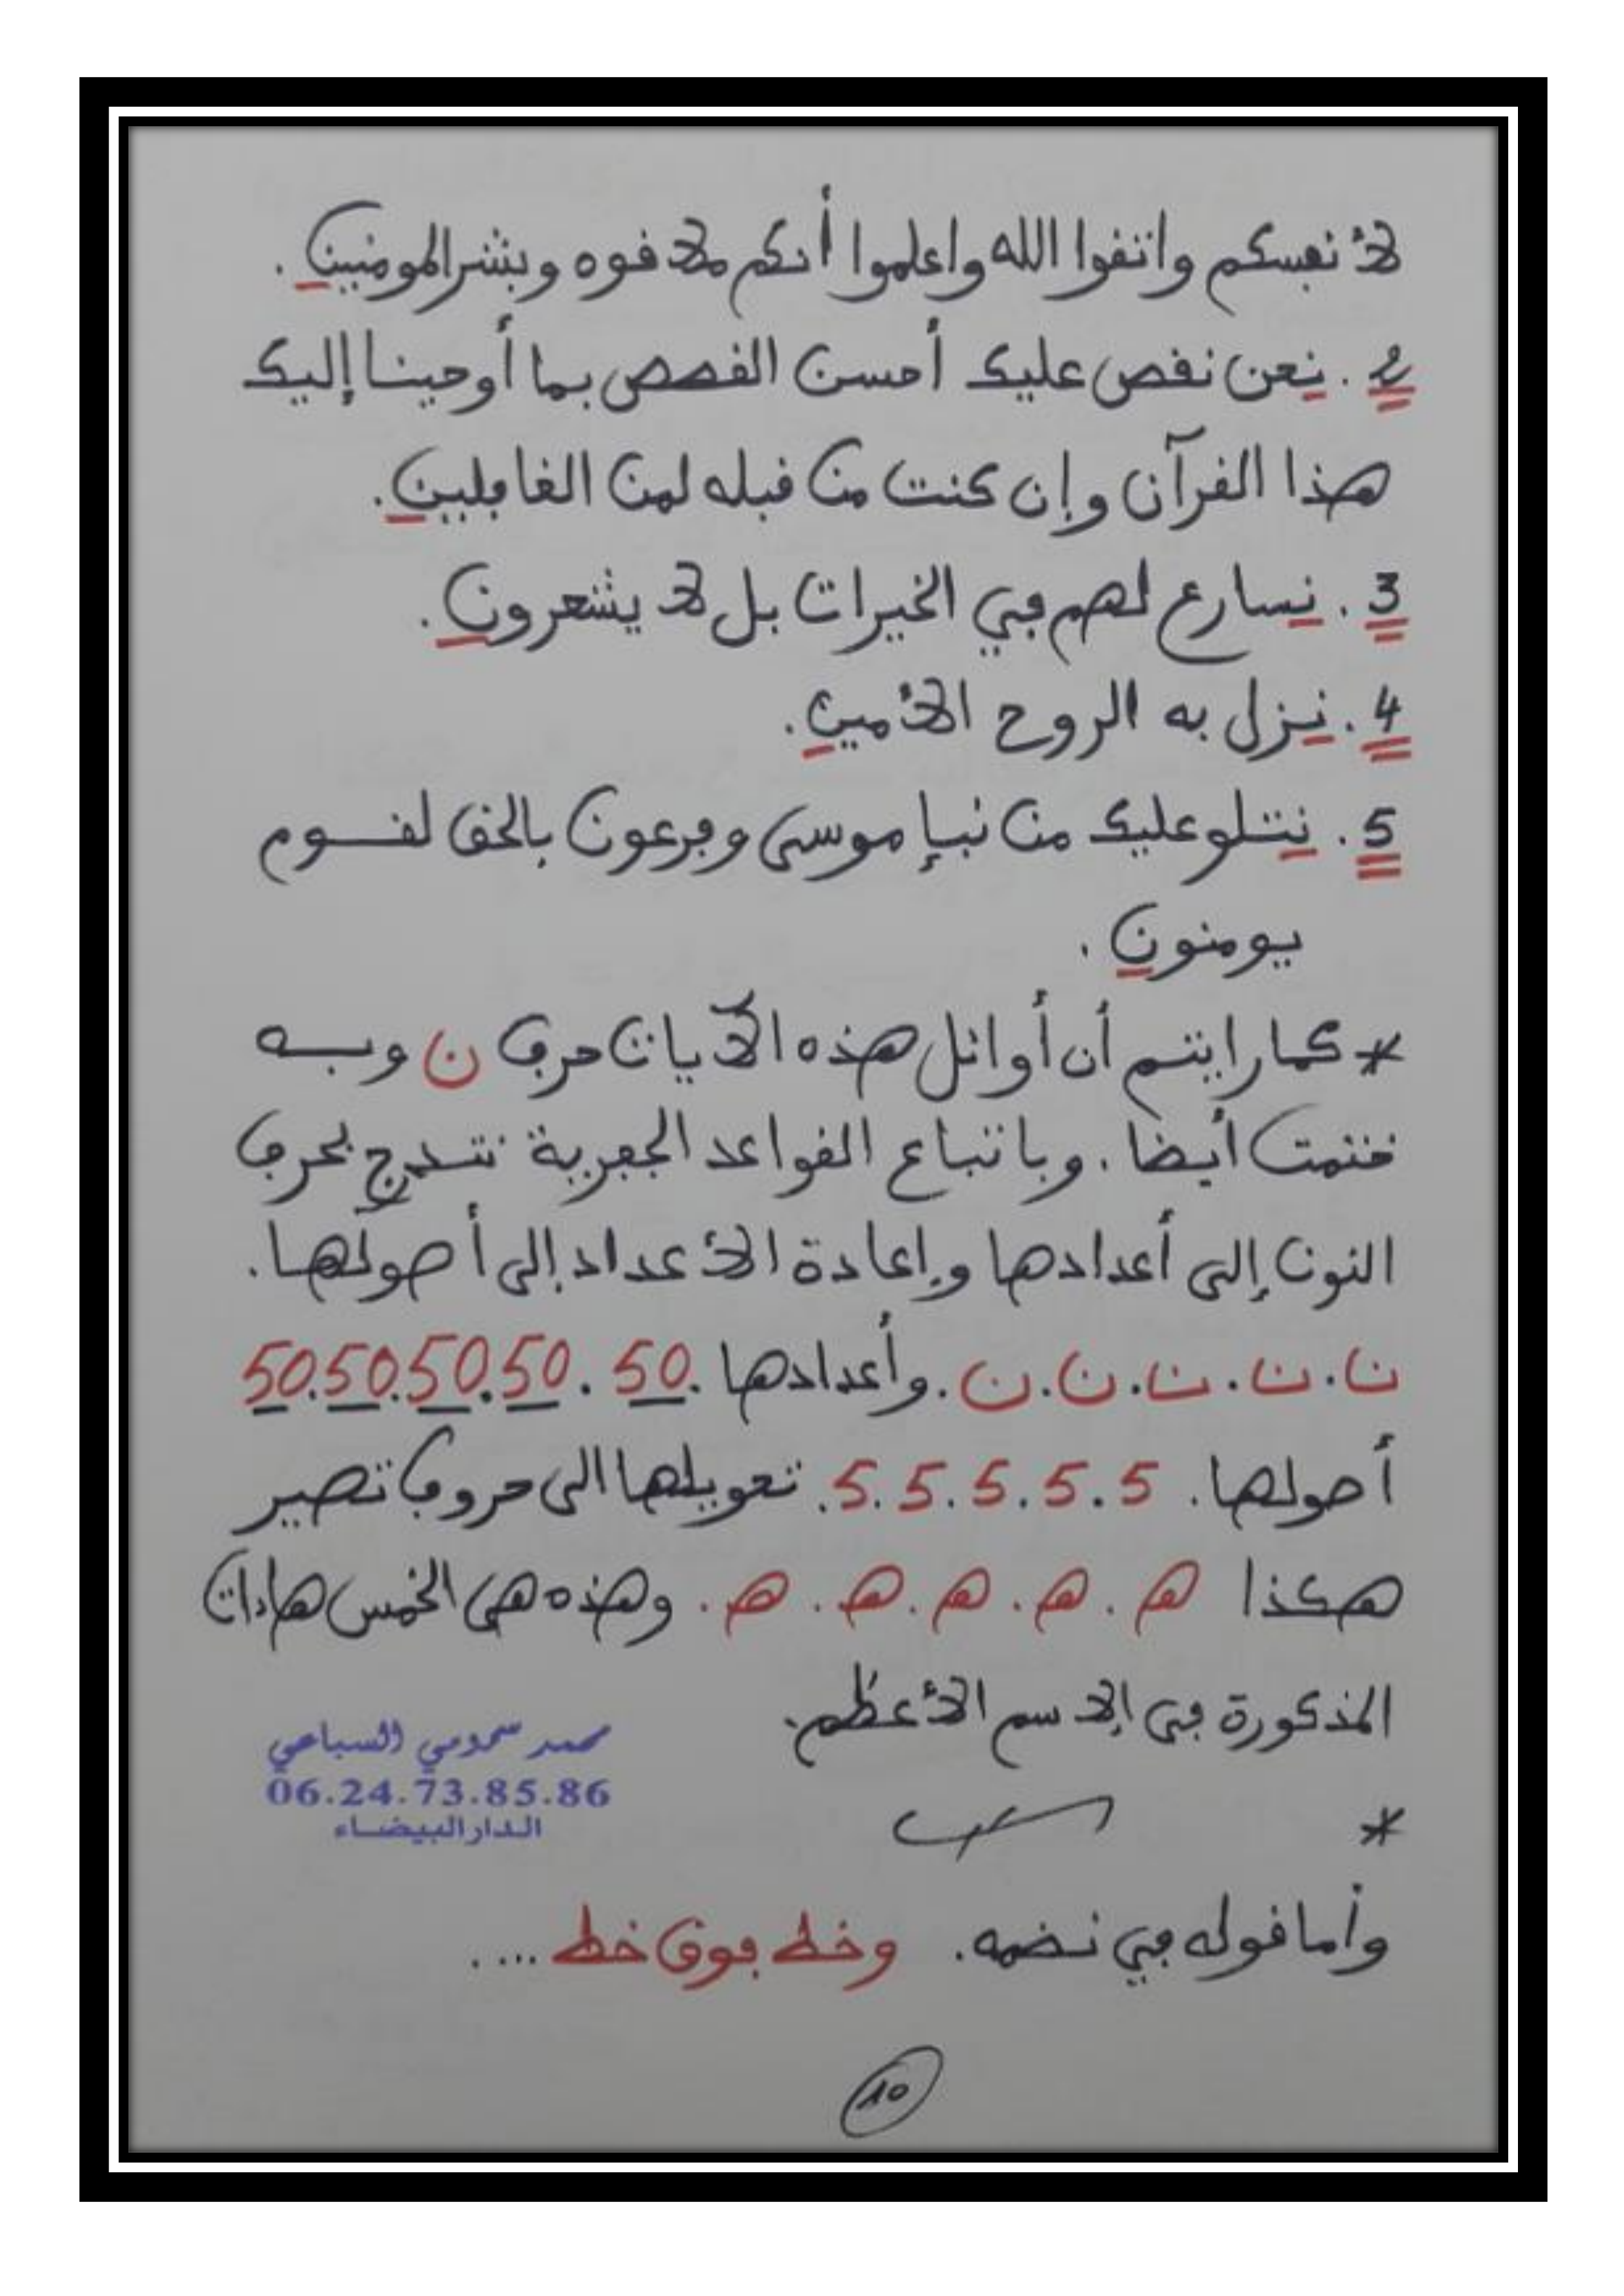 لأنفسكم واتقوا الله واعلموا أنكم ملاقوه وبشر المومنين.
2. نحن نقص عليك أحسن القصص بما أوحينا إليك
هذا القرآن وإن كنت من قبله لمن الغافلين.
3. نسارع لهم في الخيرات بل لا يشعرون.
4. نزل به الروح الأمين.
5. نتلو عليك من نبإ موسى وفرعون بالحق لقوم
يومنون.
* كما رايتم أن أوائل هذه الآيات حرف ن وبه
ختمت أيضا. وباتباع القواعد الجفرية نتدرج بحرف
النون إلى أعدادها وإعادة الأعداد إلى أصولها.
ن.ن.ن.ن.ن. وأعدادها 50.50.50.50.50
أصولها. 5.5.5.5.5. تحويلها الى حروف تصير
هكذا ه.ه.ه.ه.ه. وهذه هي الخمس هاءات
المذكورة في الاسم الأعظم.
محمد سمومي السباعي
06.24.73.85.86
الدار البيضاء
*
وأما قوله في نضمه. وخط فوق خط ....
10